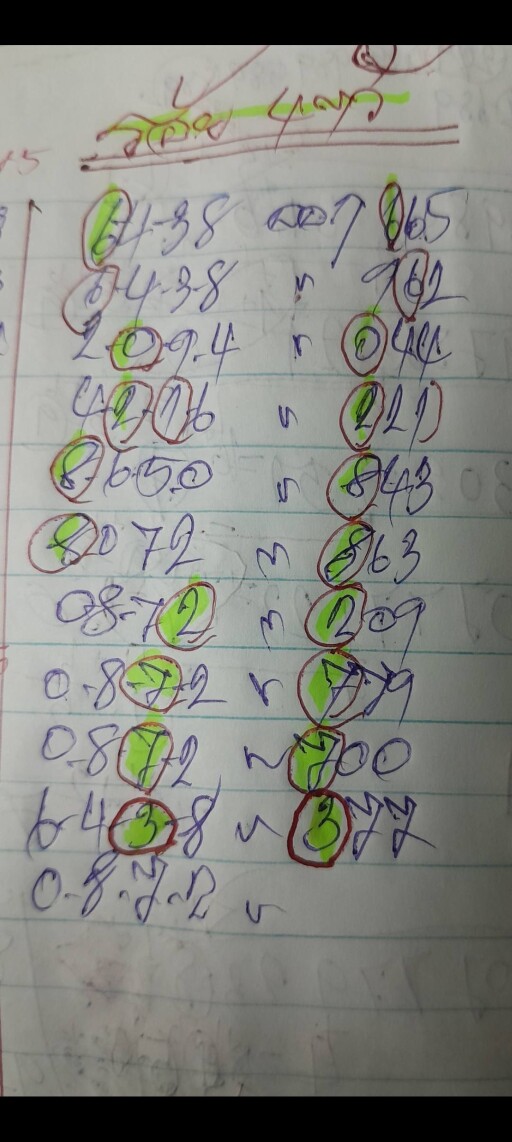 64-38 ออก 165
6-4-3-8 " 962
2-0-9-4 " 044
4-2-16 " 221
8-6-5-0 " 843
8072 " 863
08-72 " 209
0-8-7-2 " 779
0-8-7-2 " 700
6-4-3-8 " 377
0-8-7-2 "